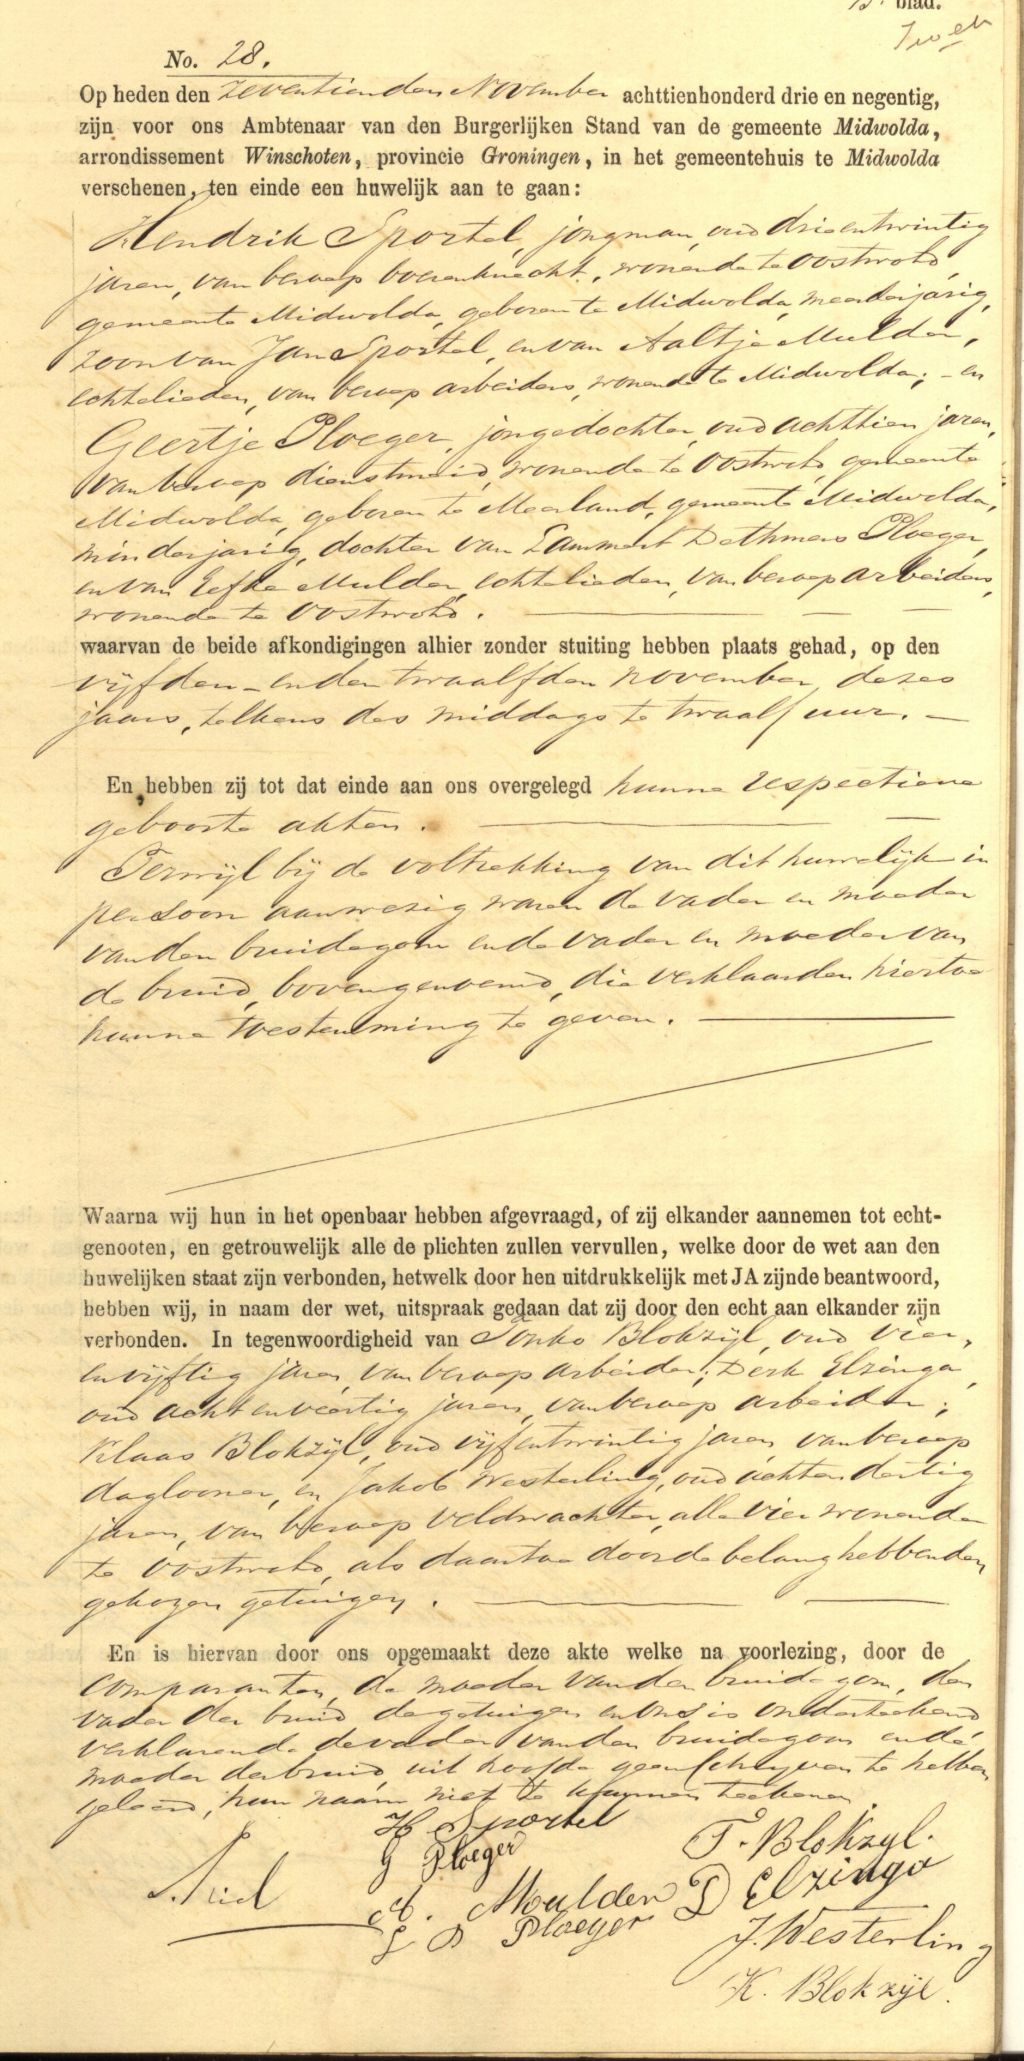 blad.
No. 28.
Op heden den zeventienden November achttienhonderd drie en negentig,
zijn voor ons Ambtenaar van den Burgerlijken Stand van de gemeente Midwolda,
arrondissement Winschoten, provincie Groningen, in het gemeentehuis te Midwolda
verschenen, ten einde een huwelijk aan te gaan:
Hendrik Sportel, jongman, oud drieentwintig
jaren, van beroep boerenknecht, wonende te Oostwold,
gemeente Midwolda, geboren te Midwolda, meerderjarig,
zoon van Jan Sportel, en van Aaltje Mulder,
echtelieden, van beroep arbeiders, wonende te Midwolda; - en
Geertje Ploeger, jongedochter, oud achttien jaren,
van beroep dienstmeid, wonende te Oostwold, gemeente
Midwolda, geboren te Meerland, gemeente Midwolda,
minderjarig, dochter van Lammert Dethmers Ploeger,
en van Eefke Mulder, echtelieden, van beroep arbeiders,
wonende te Oostwold.
waarvan de beide afkondigingen alhier zonder stuiting hebben plaats gehad, op den
vijfden - en den twaalfden november dezes
jaars, telkens des middags te twaalf uur. -
En hebben zij tot dat einde aan ons overgelegd hunne respectieve
geboorte akten.
Terwijl bij de voltrekking van dit huwelijk in
persoon aanwezig waren de vader en moeder
van den bruidegom en de vader en moeder van
de bruid, bovengenoemd, die verklaarden hiertoe
hunne toestemming te geven.
Waarna wij hun in het openbaar hebben afgevraagd, of zij elkander aannemen tot echt-
genooten, en getrouwelijk alle de plichten zullen vervullen, welke door de wet aan den
huwelijken staat zijn verbonden, hetwelk door hen uitdrukkelijk met JA zijnde beantwoord,
hebben wij, in naam der wet, uitspraak gedaan dat zij door den echt aan elkander zijn
verbonden. In tegenwoordigheid van Tonko Blokzijl, oud vier-
envijftig jaren, van beroep arbeider; Derk Elzinga,
oud achtenveertig jaren, van beroep arbeider;
Klaas Blokzijl, oud vijfentwintig jaren, van beroep
daglooner, en Jakob Westerling, oud achtendertig
jaren, van beroep veldwachter, alle vier wonende
te Oostwold, als daartoe door de belanghebbenden
gekozen getuigen.
En is hiervan door ons opgemaakt deze akte welke na voorlezing, door de
comparanten, de moeder van den bruidegom, den
vader der bruid de getuigen en ons is onderteekend
verklarende de vader van den bruidegom en de
moeder der bruid, uit hoofde geen schrijven te hebben
geleerd, hun naam niet te kunnen teekenen.
H Sportel
G Ploeger
T. Blokzyl.
A. Moulder
D Elzinga
L D Ploeger
J. Westerling
K. Blokzijl.